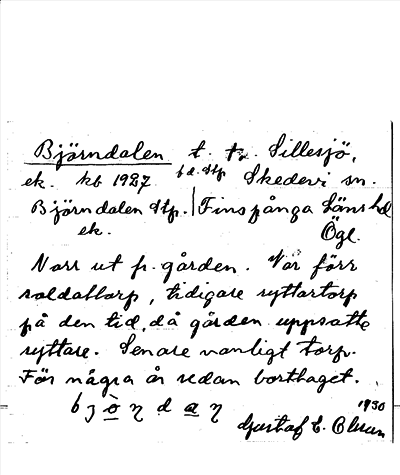 Björndalen t. tz. Sillesjö,
ek. kb 1927 bd. Stp Skedevi sn.
Björndalen Stp. Finspånga Läns hd
ek. Ögl.
Norr ut fr. gården. Var förr
soldattorp, tidigare ryttartorp
på den tid, då gården uppsatte
ryttare. Senare vanligt torp.
För några år sedan borttaget.
b j ò ŋ d a ŋ 1930
Gustaf E. Olsson